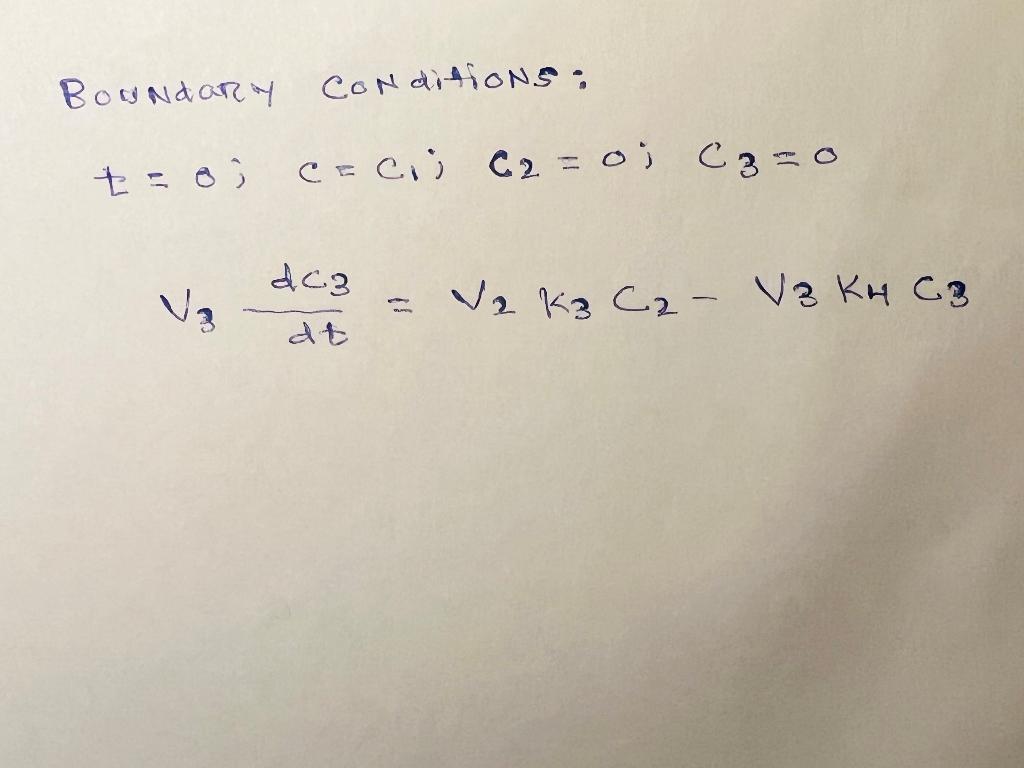 Boundary Conditions:
t = 0; c = C1; C2 = 0; C3 = 0
V3 dC3/dt = V2 K3 C2 - V3 K4 C3